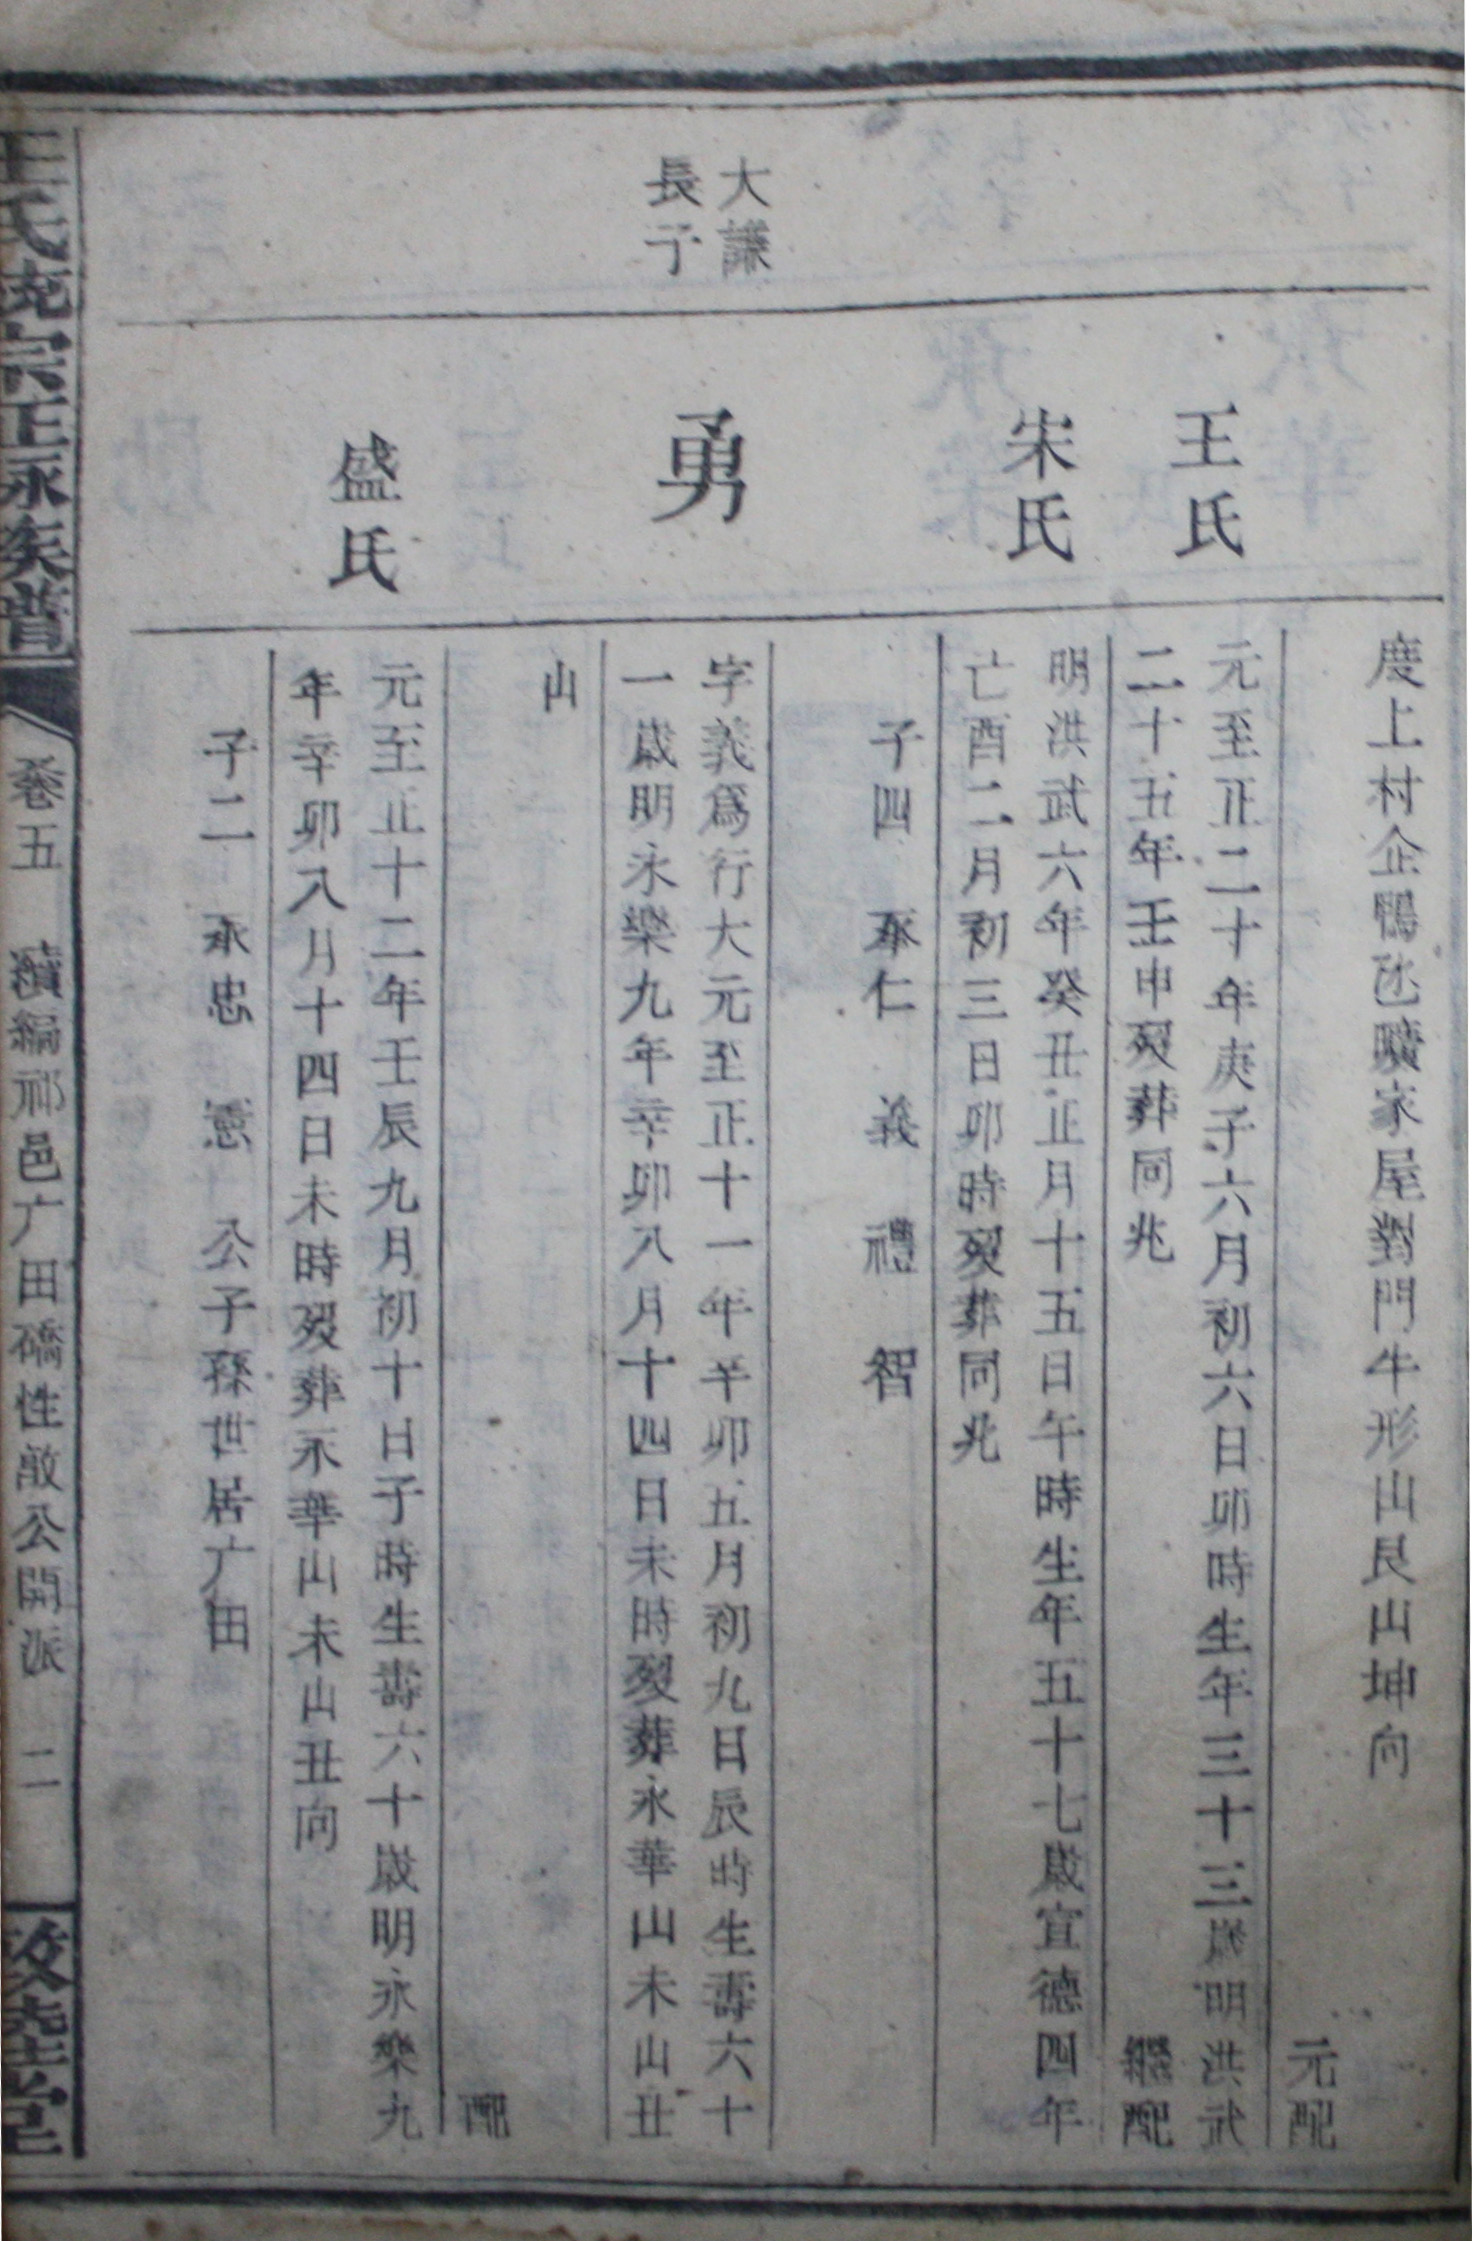 大謙
長子
王氏
宋氏
勇
盛氏
度上村企鴨氹曠家屋對門牛形山艮山坤向
元配
元至正二十年庚子六月初六日卯時生年三十三歲明洪武
二十五年壬申歿葬同兆
繼配
明洪武六年癸丑正月十五日午時生年五十七歲宣德四年
亡酉二月初三日卯時歿葬同兆
子四 承仁 義 禮 智
字義爲行大元至正十一年辛卯五月初九日辰時生壽六十
一歲明永樂九年辛卯八月十四日未時歿葬永華山未山丑
山
配
元至正十二年壬辰九月初十日子時生壽六十歲明永樂九
年辛卯八月十四日未時歿葬永華山未山丑向
子二 承忠 憲 公子孫世居广田
王氏統宗正永族譜
卷五 續編祁邑广田礄性敵公開派 二